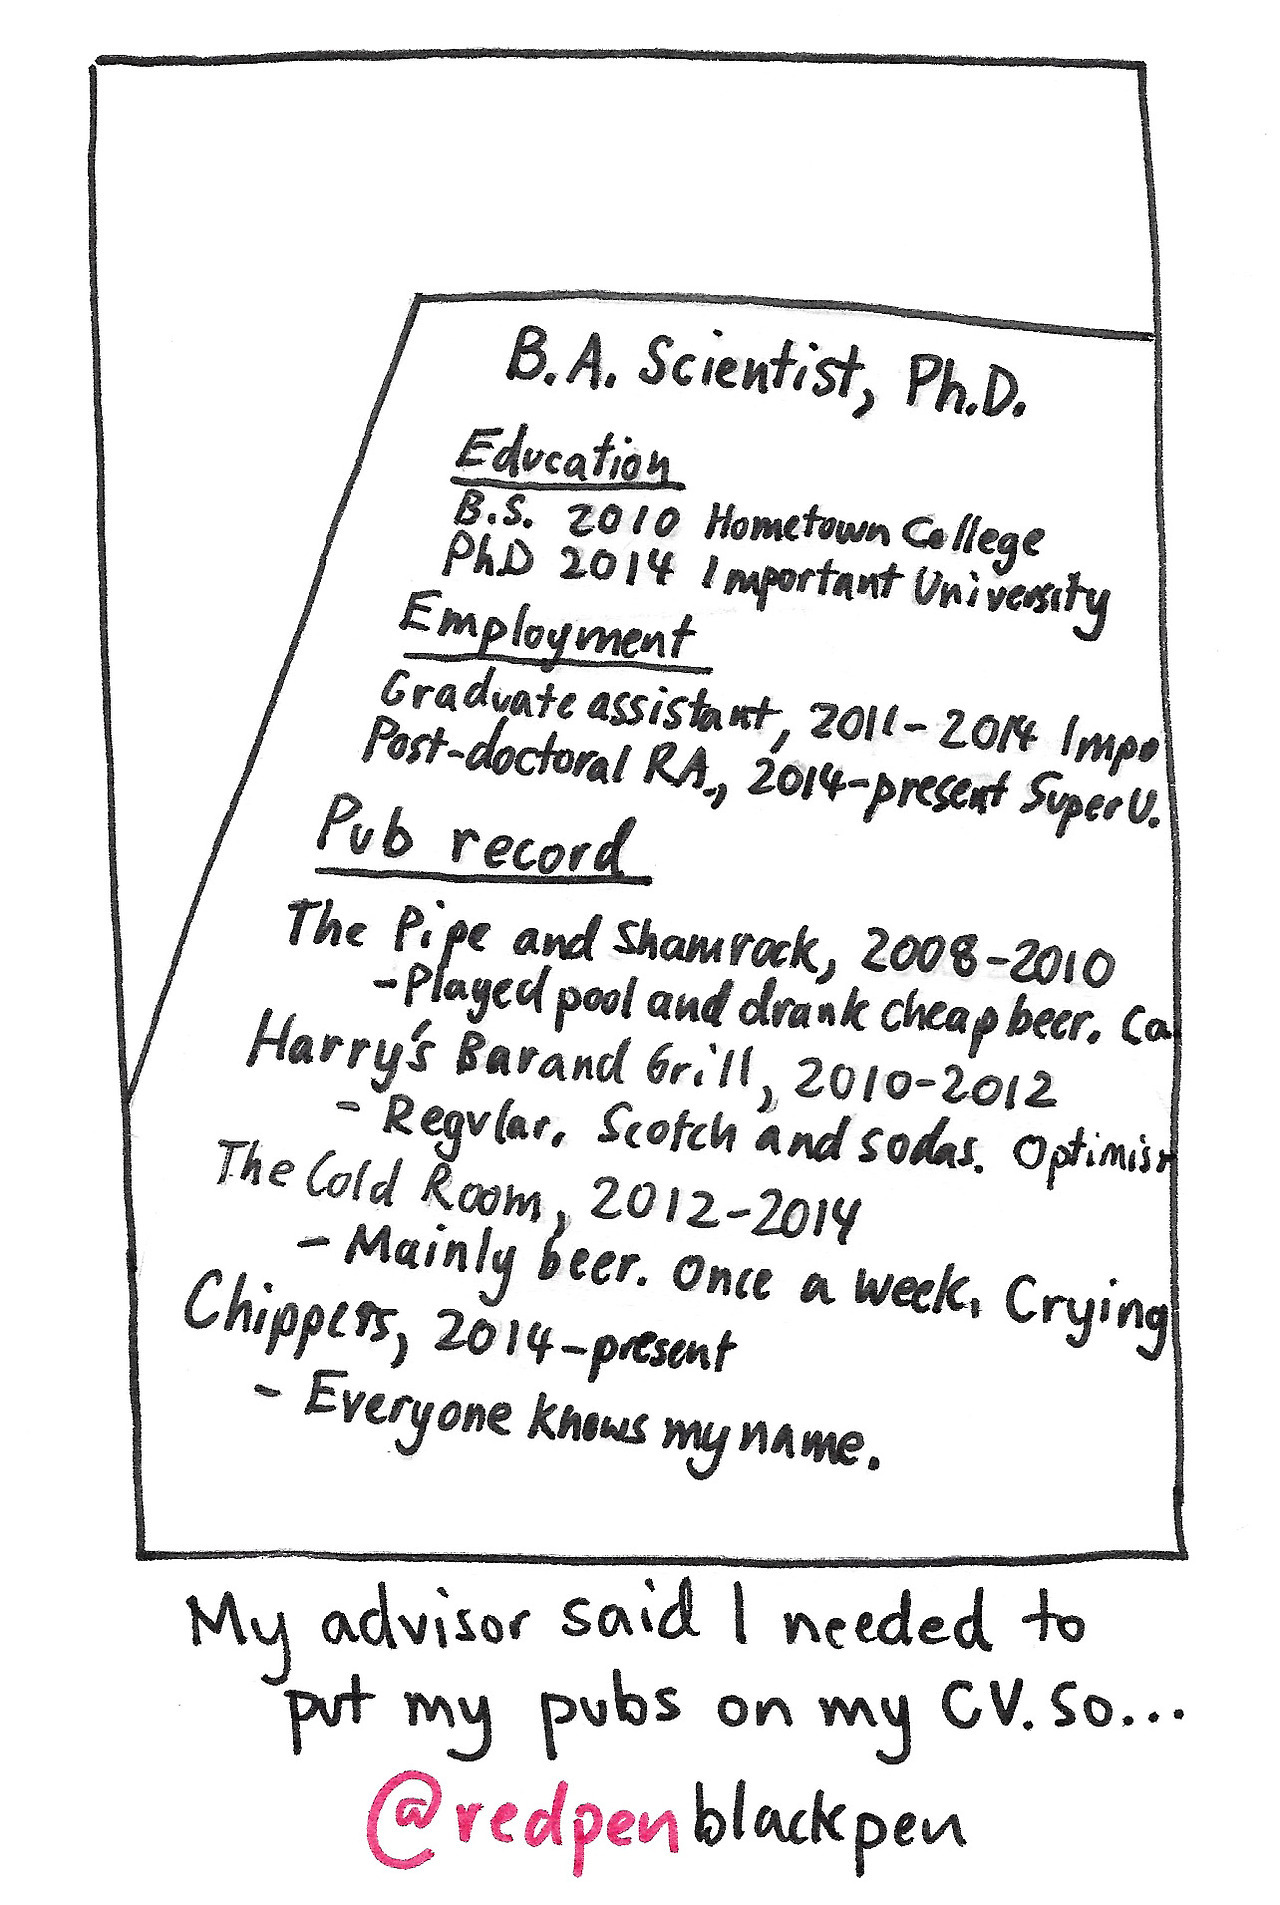 B.A. Scientist, Ph.D.
Education
B.S. 2010 Hometown College
PhD 2014 Important University
Employment
Graduate assistant, 2011-2014 Impo
Post-doctoral RA., 2014-present Super U.
Pub record
The Pipe and Shamrock, 2008-2010
-Played pool and drank cheap beer. Ca
Harry's Bar and Grill, 2010-2012
- Regular. Scotch and sodas. Optimis
The Cold Room, 2012-2014
- Mainly beer. Once a week. Crying
Chippers, 2014-present
- Everyone knows my name.
My advisor said I needed to
put my pubs on my CV. So...
@redpenblackpen